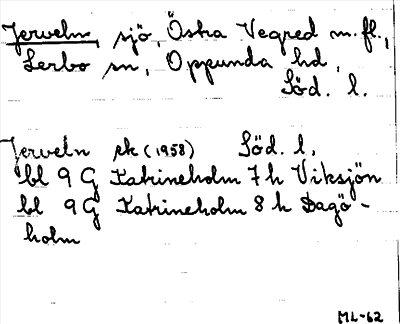 Jerveln, sjö, Östra Vegred m.fl.,
Lerbo sn, Oppunda hd,
Söd. l.
Jerveln ek (1958) Söd. l.
bl 9 G Katrineholm 7 h Viksjön
bl 9 G Katrineholm 8 h Dagö-
holm
ML-62